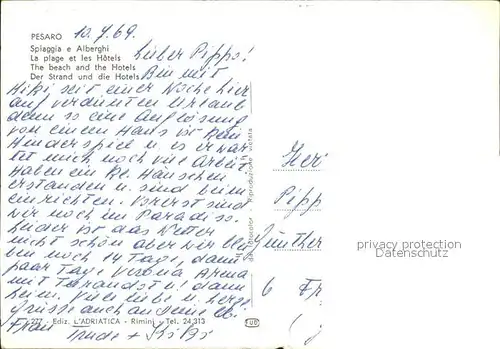 PESARO
10.7.69.
Spiaggia e Alberghi
La plage et les Hôtels
The beach and the Hotels
Der Strand und die Hotels
Lieber Pipps!
Bin mit
seit einer Woche hier
auf verdienten Urlaub
denn so eine Auflösung
von einem Haus ist kein
Kinderspiel u. es erwar-
tet mich noch viel Arbeit
Haben ein kl. Häuschen
erstanden u. sind beim
einrichten. Vorerst sind
wir noch im Paradies.
Leider ist das Wetter
nicht schön aber wir
ben noch 14 Tage, dann
paar Tage Verona Arena
mit u. dann
heim. Viele liebe u. herzl.
Grüsse auch an deine lb.
Frau
Trude +
277 - Ediz. L'ADRIATICA - Rimini - Tel. 24.313
Riproduzione vietata
Her
Pipp
Günther
6 Fr
privacy protection
Datenschutz